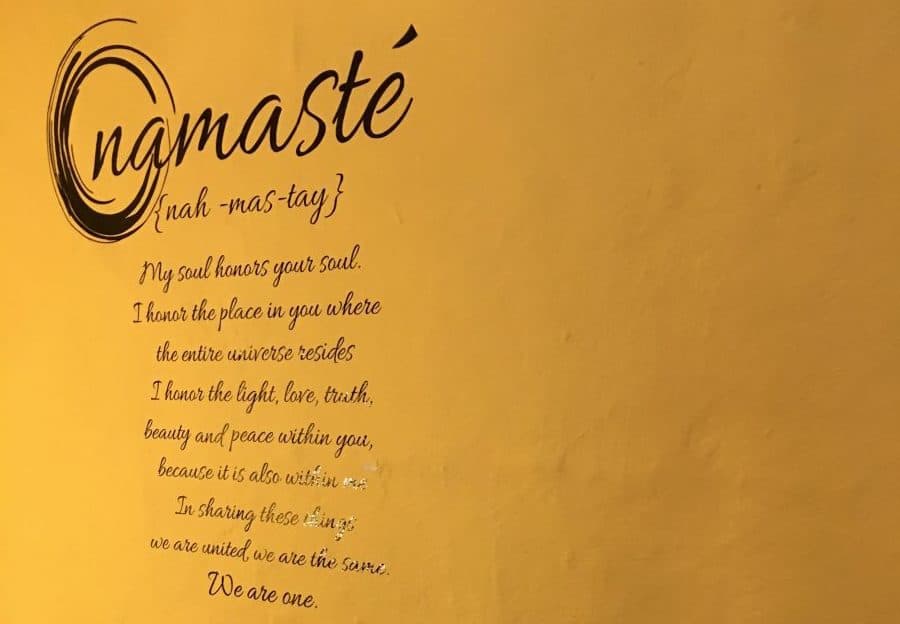 namasté
{nah -mas-tay}
My soul honors your soul.
I honor the place in you where
the entire universe resides
I honor the light, love, truth,
beauty and peace within you,
because it is also within me
In sharing these things
we are united, we are the same.
We are one.